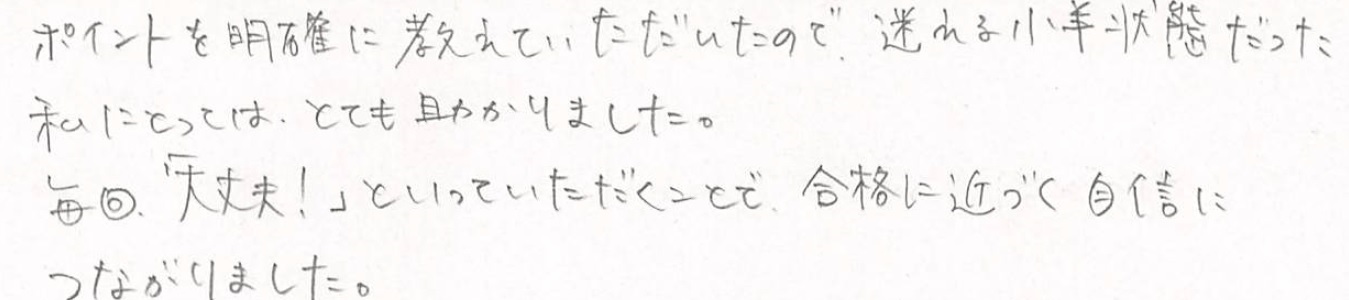 ポイントを明確に教えていただいたので、迷れる小羊状態だった
私にとっては、とても助かりました。
毎回、「大丈夫！」といっていただくことで、合格に近づく自信に
つながりました。